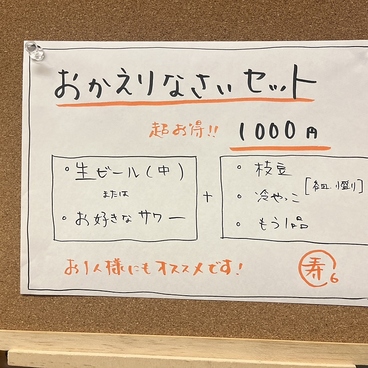 おかえりなさいセット
超お得!! 1000円
・生ビール(中)
または
・お好きなサワー
+
・枝豆
・冷やっこ
・もう1品
お1人様にもオススメです!
寿